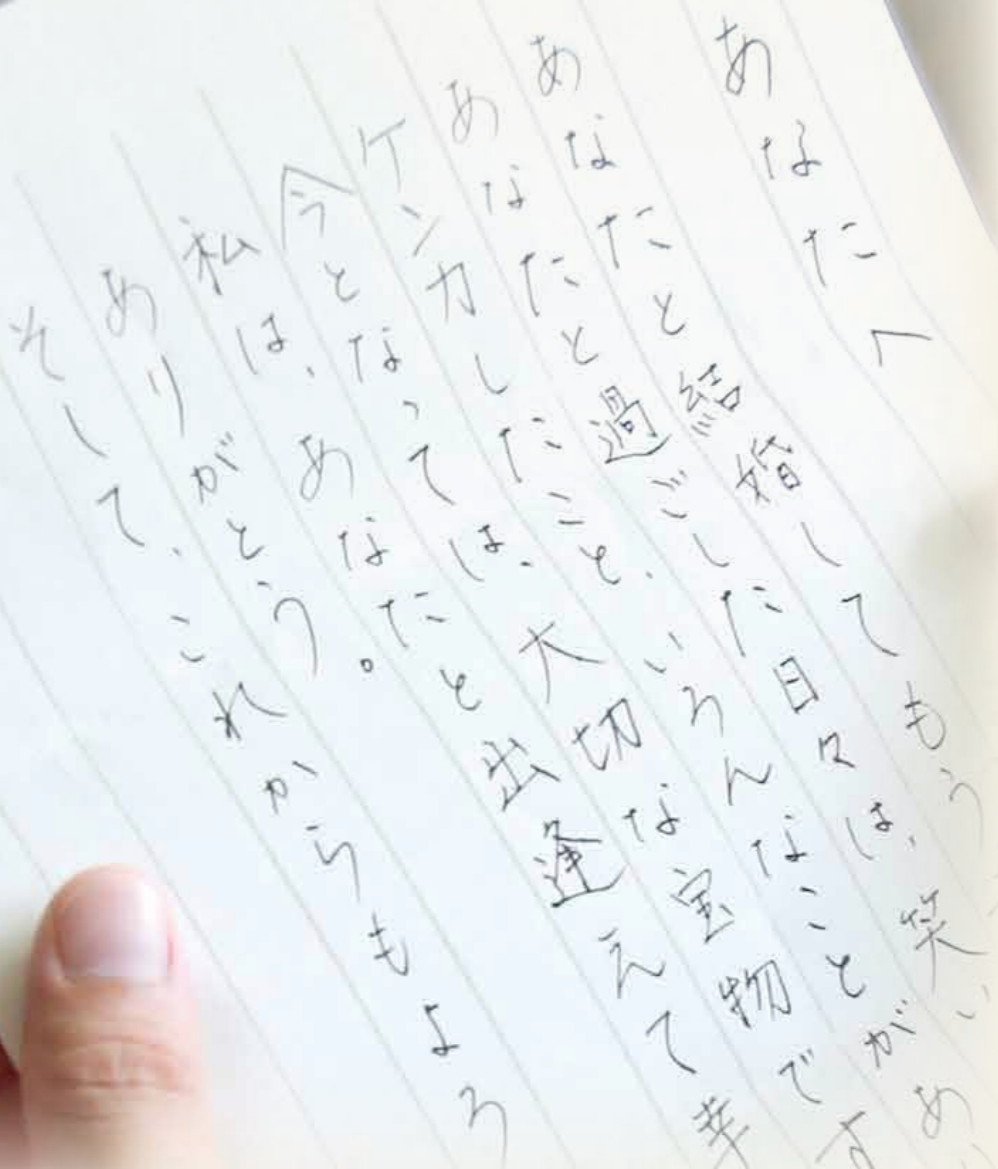 あなたへ
あなたと結婚してもう
あなたと過ごした日々は、笑い
ケンカしたこと、いろんなことが
今となっては、大切な宝物です
私は、あなたと出逢えて幸
ありがとう。
そして、これからもよろ